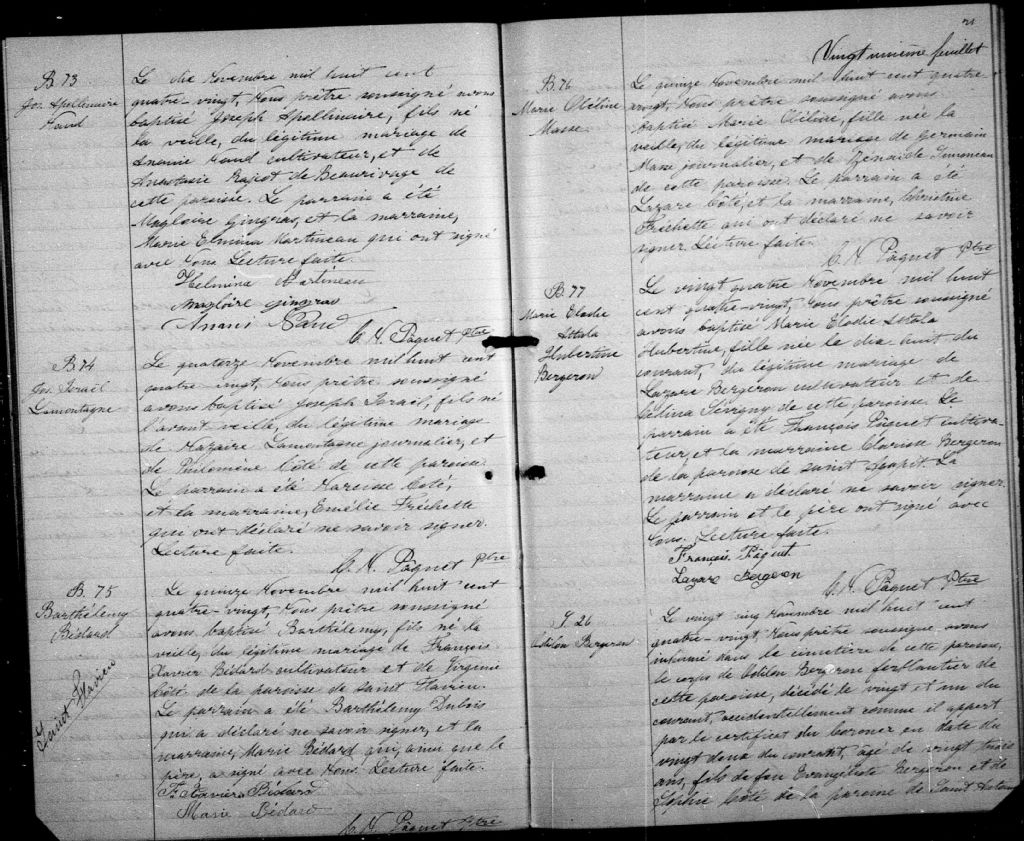 B 73
Jos. Apollinaire
Naud
Le dix Novembre mil huit cent
quatre-vingt, Nous prêtre soussigné avons
baptisé Joseph Apollinaire, fils né
la veille, du légitime mariage de
Ananie Naud cultivateur, et de
Anastasie Bazot de Beaurivage de
cette paroisse. Le parrain a été
Magloire Gingras, et la marraine,
Marie Elmina Martineau qui ont signé
avec Nous. Lecture faite.
Helmina Martineau
Magloire Gingras
Anani Naud
C. N. Pâquet Ptre
B 74
Jos. Israil
Lamontagne
Le quatorze Novembre mil huit cent
quatre vingt, Nous prêtre soussigné
avons baptisé Joseph Israil, fils né
l'avant veille, du légitime mariage
de Nazaire Lamontagne journalier, et
de Philomène Côté de cette paroisse.
Le parrain a été Narcisse Côté,
et la marraine, Emélie Fréchette
qui ont déclaré ne savoir signer.
Lecture faite.
C. N. Pâquet Ptre
B. 75
Barthélemy
Bédard
Saint Flavien
Le quinze Novembre mil huit cent
quatre-vingt, Nous prêtre soussigné
avons baptisé Barthélemy, fils né la
veille, du légitime mariage de François
Xavier Bédard cultivateur et de Virginie
Côté de la paroisse de Saint Flavien.
Le parrain a été Barthélemy Dubois
qui a déclaré ne savoir signer, et la
marraine, Marie Bédard qui, ainsi que le
père, a signé avec Nous. Lecture faite.
F. Xavier Bédard
Marie Bédard
C. N. Pâquet Ptre
21
Vingt unième feuillet
B. 76
Marie Obéline
Masse
Le quinze Novembre mil huit cent quatre-
vingt, Nous prêtre soussigné avons
baptisé Marie Obéline, fille née la
veille, du légitime mariage de Germain
Masse journalier, et de Zénaïde Simoneau
de cette paroisse. Le parrain a été
Lazare Côté, et la marraine, Christine
Fréchette qui ont déclaré ne savoir
signer. Lecture faite.
C. N. Pâquet Ptre
B 77
Marie Elodie
Attala
Hubertine
Bergeron
Le vingt quatre Novembre mil huit
cent quatre-vingt, Nous prêtre soussigné
avons baptisé Marie Elodie Attala
Hubertine, fille née le dix huit du
courant, du légitime mariage de
Lazare Bergeron cultivateur et de
Célina Sévigny de cette paroisse. Le
parrain a été François Pâquet cultiva-
teur, et la marraine Clarisse Bergeron
de la paroisse de Saint Agapit. La
marraine a déclaré ne savoir signer.
Le parrain et le père ont signé avec
Nous. Lecture faite.
François Pâquet
Lazare Bergeron
C. N. Pâquet Ptre
S 26
Odilon Bergeron
Le vingt cinq Novembre mil huit cent
quatre-vingt, Nous prêtre soussigné avons
inhumé dans le cimetière de cette paroisse,
le corps de Odilon Bergeron ferblantier de
cette paroisse, décédé le vingt et un du
courant, accidentellement comme il appert
par le certificat du Coroner en date du
vingt deux du courant, âgé de vingt trois
ans, fils de feu Evangéliste Bergeron et de
Sophie Côté de la paroisse de Saint Antoine